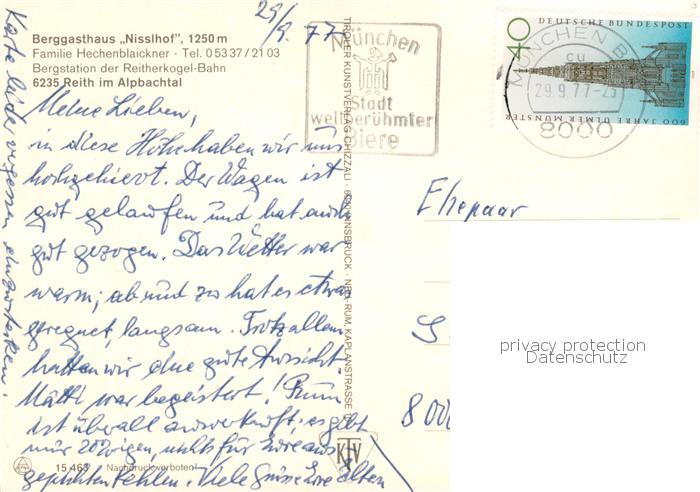 Berggasthaus „Nisslhof", 1250 m
Familie Hechenblaickner - Tel. 0 53 37 / 21 03
Bergstation der Reitherkogel-Bahn
6235 Reith im Alpbachtal
29/9. 77
Meine Lieben,
in diese Höhe haben wir uns
hochgehievt. Der Wagen ist
gut gelaufen und hat auch
gut gezogen. Das Wetter war
warm; ab und zu hat es etwas
geregnet, langsam. Trotz allem
hatten wir eine gute Aussicht.
war begeistert!
ist überall ausverkauft; es gibt
nur
Viele Grüsse Eure Alten
Karte leider vergessen einzustecken.
15 463 Nachdruck verboten!
KTV
TIROLER KUNSTVERLAG CHIZZALI · INNSBRUCK · NEU-RUM, KAPLANSTRASSE
München
Stadt
weltberühmter
Biere
DEUTSCHE BUNDESPOST
40
600 JAHRE ULMER MÜNSTER
MÜNCHEN
cu
29.9.77-23
8000
Ehepaar
S
8000
privacy protection
Datenschutz